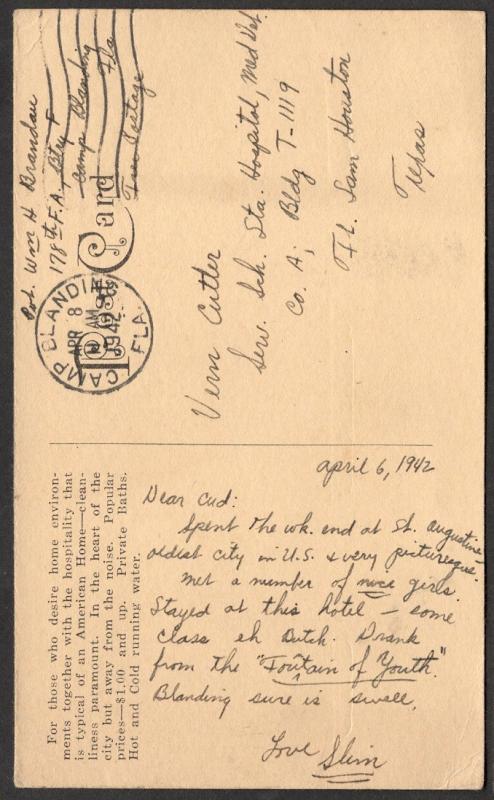 Pvt. Wm H Brandau
178th F.A., Btry F
Camp Blanding
Fla
Free Postage
Post Card
CAMP BLANDING
APR 8
AM
1942
FLA.
Vern Cutler
Serv. Sch. Sta. Hospital, Med Det
Co. A; Bldg T-1119
Ft. Sam Houston
Texas
For those who desire home environ-
ments together with the hospitality that
is typical of an American Home—clean-
liness paramount. In the heart of the
city but away from the noise. Popular
prices—$1.00 and up. Private Baths.
Hot and Cold running water.
April 6, 1942
Dear Cud:
Spent the wk. end at St. Augustine –
oldest city in U.S. & very picturesque.
Met a number of nice girls.
Stayed at this hotel – some
class eh Dutch. Drank
from the "Foutain of Youth."
Blanding sure is swell.
Love Slim